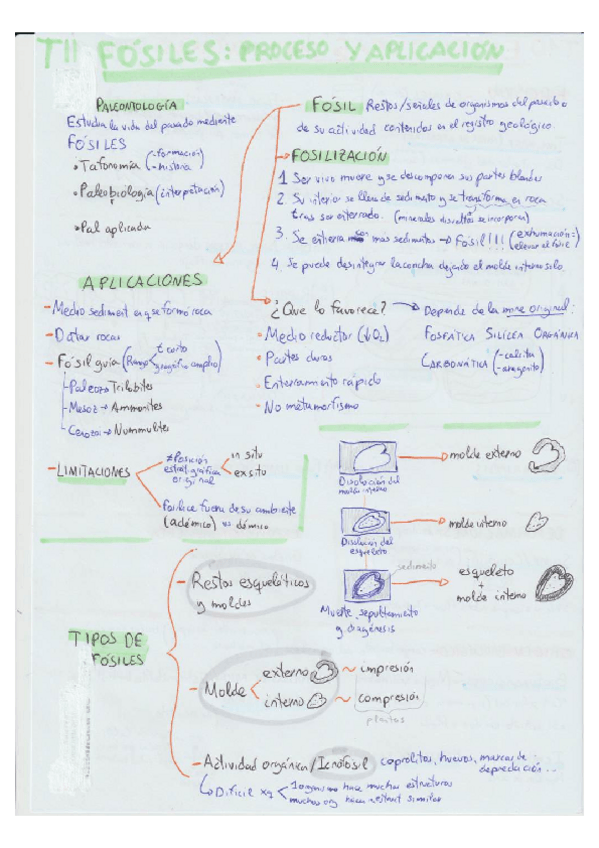 T11 FÓSILES: PROCESO Y APLICACIÓN
PALEONTOLOGÍA
Estudia la vida del pasado mediante
FÓSILES
• Tafonomía (-formación
-historia)
• Paleobiología (interpretación)
• Pal aplicada
FÓSIL Restos/señales de organismos del pasado o
de su actividad contenidos en el registro geológico.
→ FOSILIZACIÓN
1 Ser vivo muere y se descompone sus partes blandas
2. Su interior se llena de sedimento y se transforma en roca
tras ser enterrado. (minerales disueltos se incorporan)
3. Se entierra con mas sedimentos → Fósil!!! (exhumación:
elevar el fósil)
4. Se puede desintegrar la concha dejando el molde interno solo.
APLICACIONES
- Medio sediment en q se formó roca
- Datar rocas
- Fósil guía (Rango t corto
geográfico amplio)
- Paleozo → Trilobites
- Mesoz → Ammonites
- Cenozoi → Nummulites
¿Que lo favorece?
• Medio reductor (↓O2)
• Partes duras
• Enterramiento rápido
• No metamorfismo
Depende de la mone original:
FOSFÁTICA SILÍCEA ORGÁNICA
CARBONÁTICA (-calcita
-aragonito)
- LIMITACIONES
≠ Posición
estratigráfica
original
in situ
ex situ
Fosilice fuera de su ambiente
(adémico) vs démico
Disolución del
molde interno
molde externo
Disolución del
esqueleto
molde interno
sedimento
esqueleto
+
molde interno
Muerte, sepultamiento
y diagénesis
TIPOS DE
FÓSILES
- Restos esqueléticos
y moldes
- Molde
externo ~ impresión
interno ~ compresión
plantas
- Actividad orgánica/Icnofósil coprolitos, huevos, marcas de
depredación...
Dificil xq
1 organismo hace muchas estructuras
muchos org hacen estruct similar